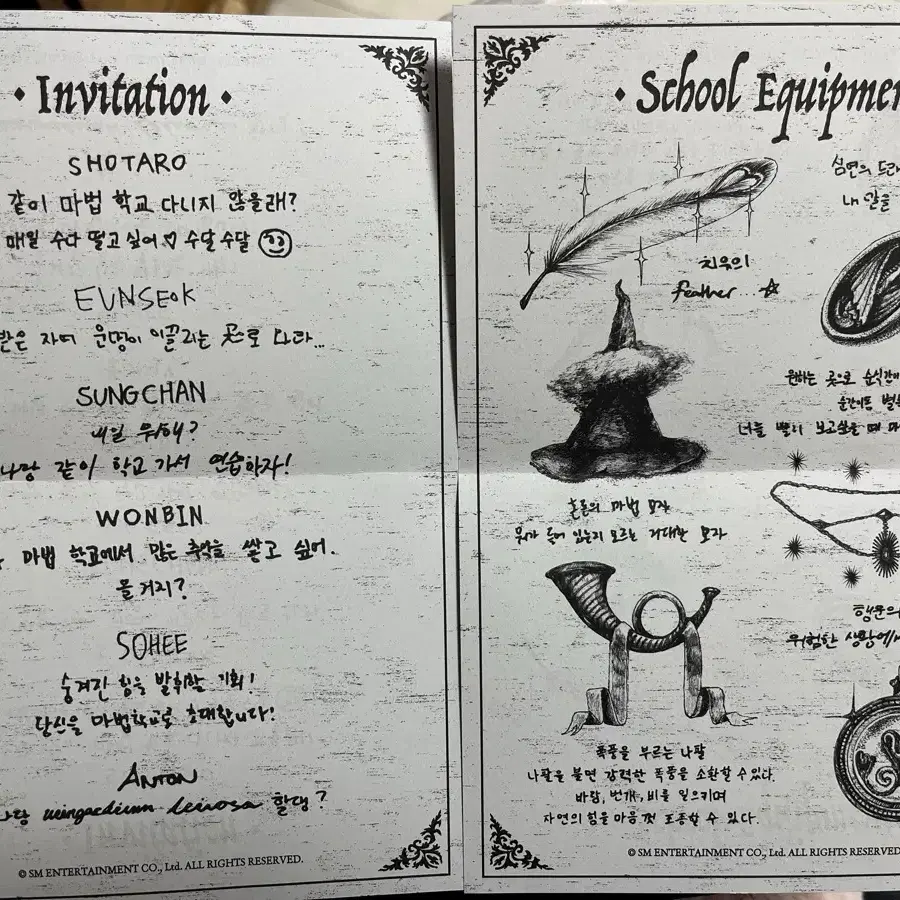 Invitation
SHOTARO
같이 마법 학교 다니지 않을래?
매일 수다 떨고 싶어♡ 수달수달
EUNSEOK
받은 자여 운명이 이끌리는 곳으로 나와...
SUNGCHAN
내일 뭐해?
나랑 같이 학교 가서 연습하자!
WONBIN
마법 학교에서 많은 추억을 쌓고 싶어.
올 거지?
SOHEE
숨겨진 힘을 발휘할 기회!
당신을 마법학교로 초대합니다!
ANTON
나랑 wingardium leviosa 할댕?
© SM ENTERTAINMENT CO., Ltd. ALL RIGHTS RESERVED.
School Equipmen
심연의 드래
내 알을
치유의
feather...☆
원하는 곳으로 순식간에
순간이동
너를 빨리 보고싶을 때
혼돈의 마법 모자
뭐가 들어 있는지 모르는 거대한 모자
행운의
위험한 상황에서
폭풍을 부르는 나팔
나팔을 불면 강력한 폭풍을 소환할 수 있다.
바람, 번개, 비를 일으키며
자연의 힘을 마음껏 조종할 수 있다.
© SM ENTERTAINMENT CO., Ltd. ALL RIGHTS RESERVED.